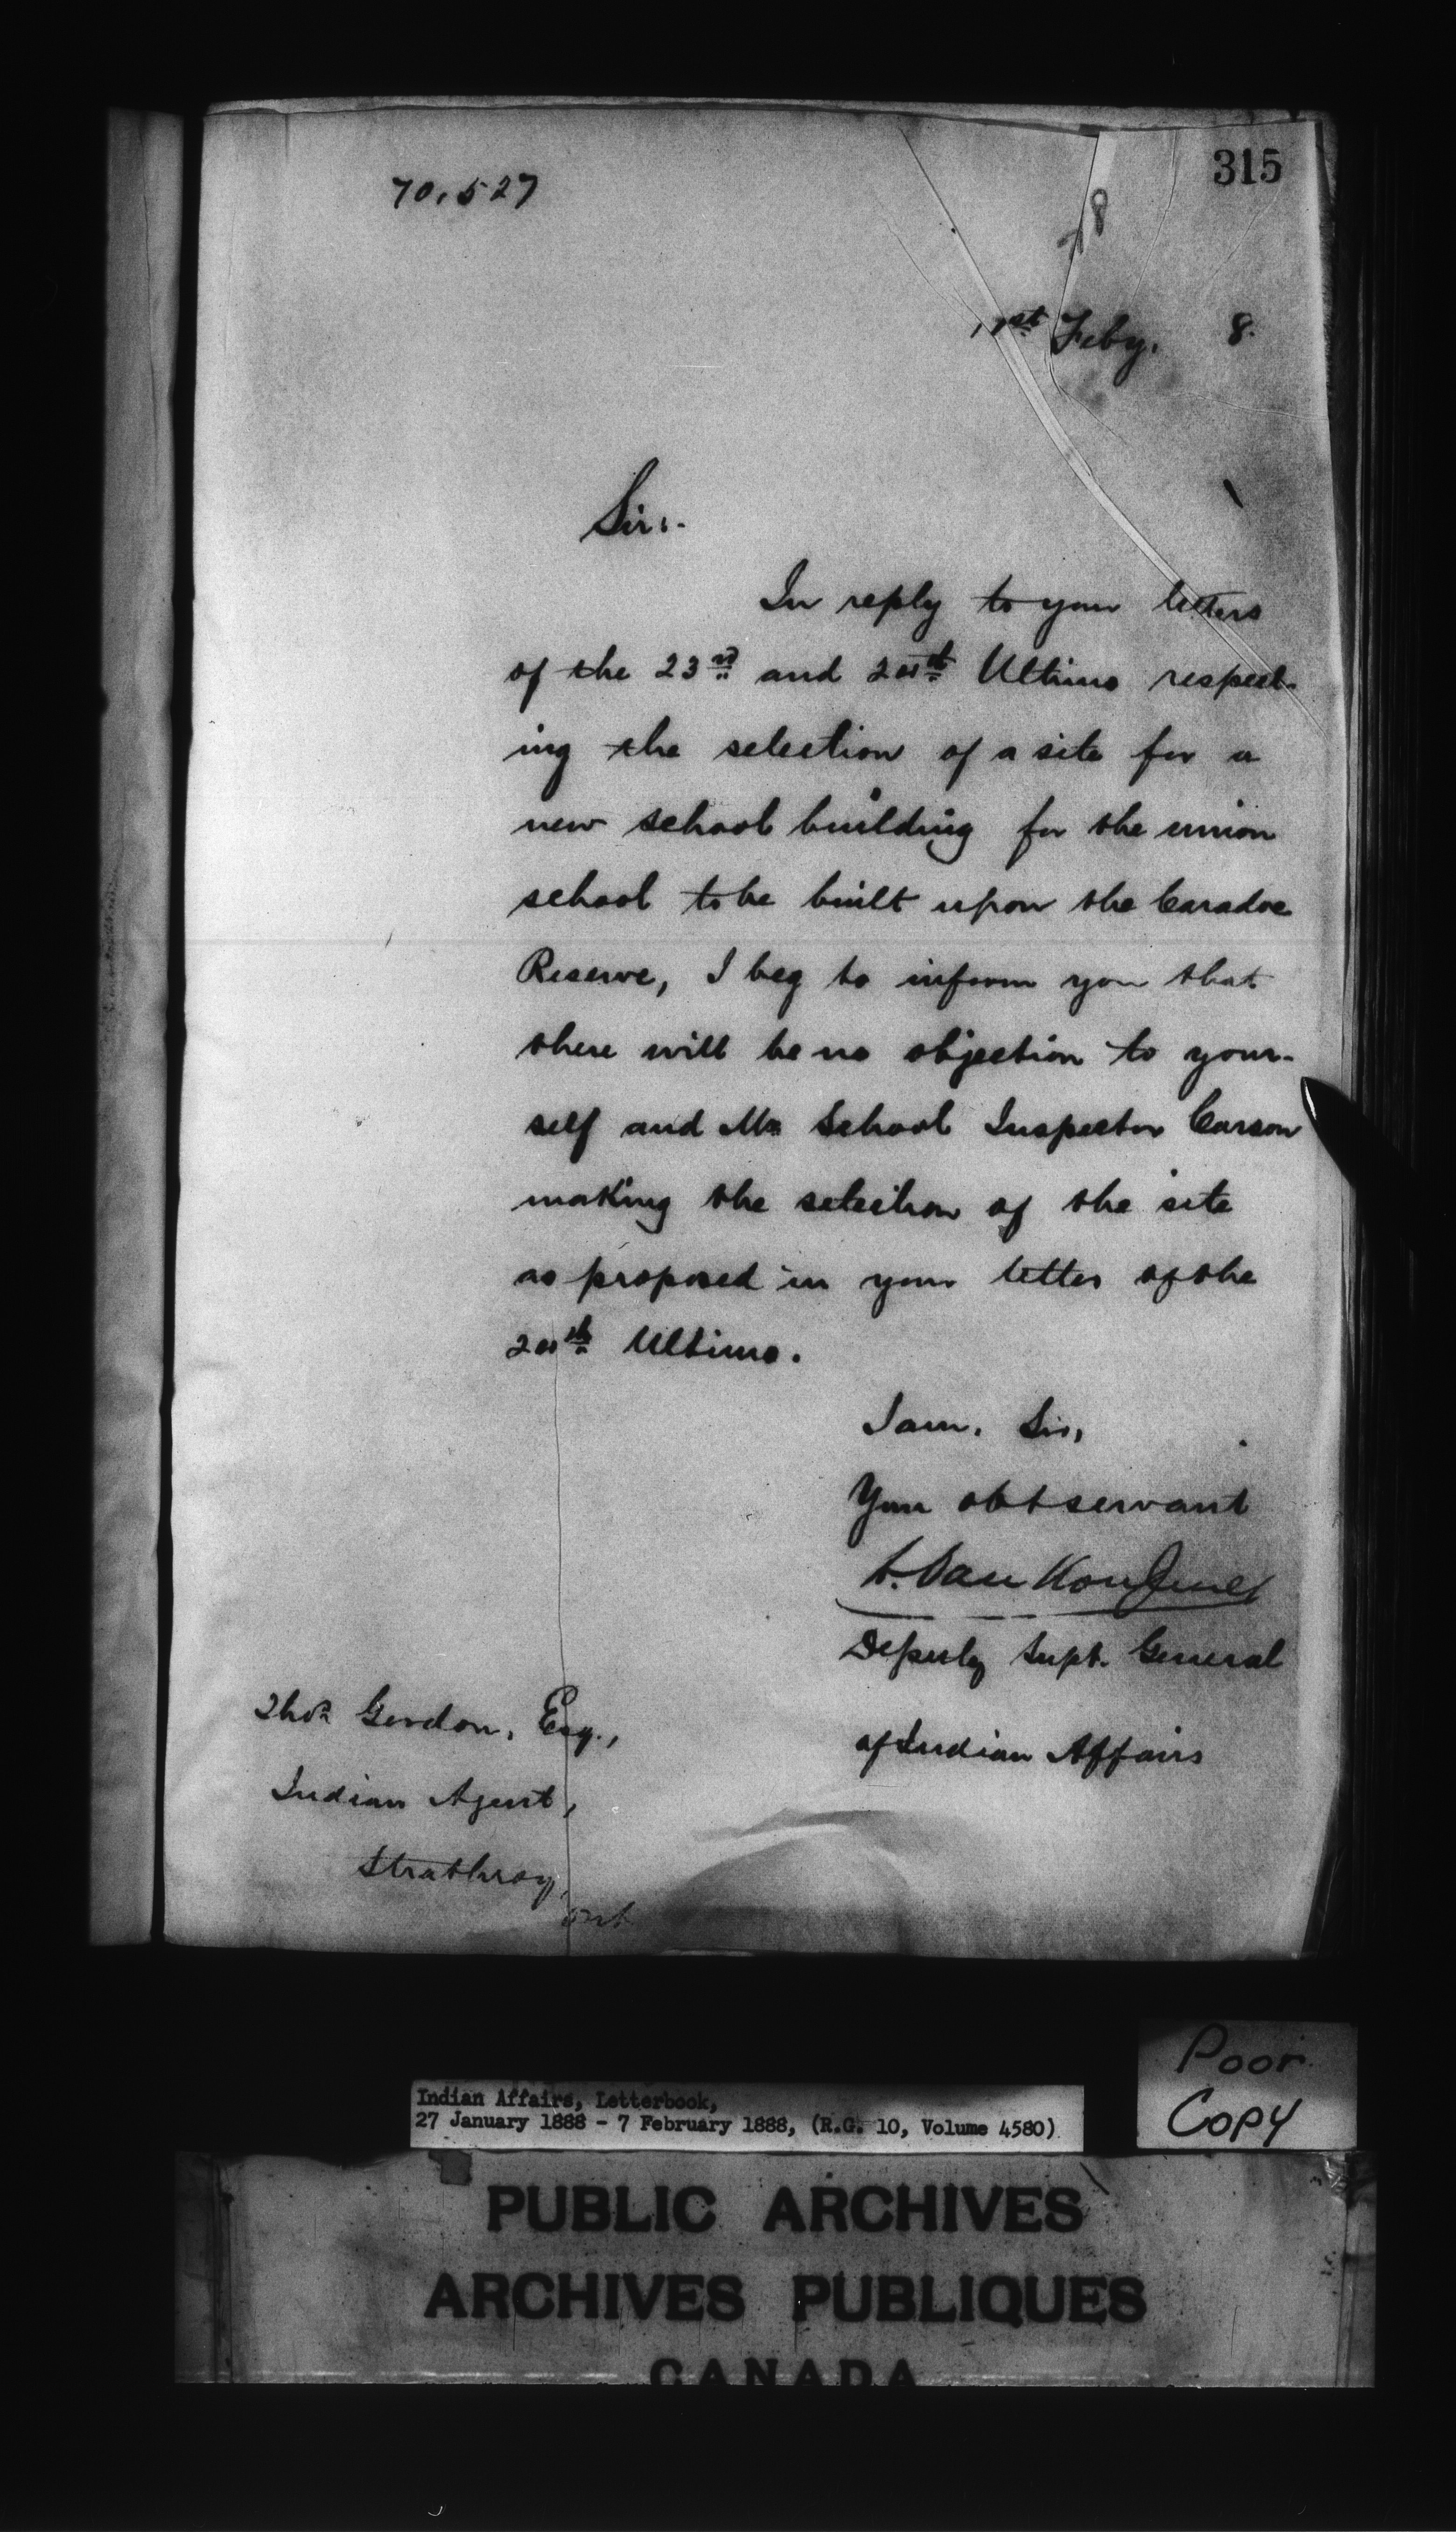 315
70,527
78
1st Feby. 8.
Sir:-
In reply to your letters
of the 23rd and 2 th Ultimo respect-
ing the selection of a site for a
new school building for the union
school to be built upon the Caradoc
Reserve, I beg to inform you that
there will be no objection to your-
self and Mr School Inspector Carson
making the selection of the site
as proposed in your letter of the
2 th Ultimo.
I am, Sir,
Your obt servant
L. VanKoughnet
Deputy Supt. General
of Indian Affairs
Thos Gordon, Esq.,
Indian Agent,
Strathroy,
Ont
Poor
Copy
Indian Affairs, Letterbook,
27 January 1888 - 7 February 1888, (R.G. 10, Volume 4580)
PUBLIC ARCHIVES
ARCHIVES PUBLIQUES
CANADA